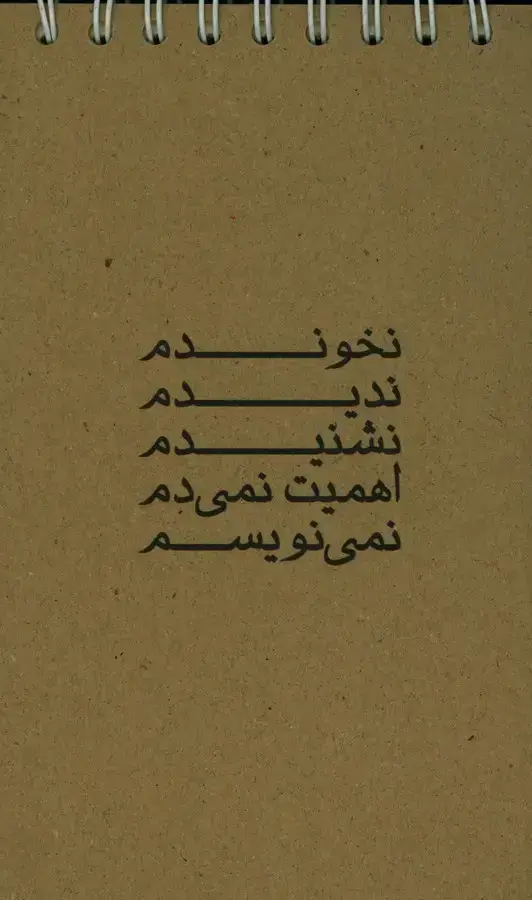 نخوندم
ندیدم
نشنیدم
اهمیت نمی‌دم
نمی‌نویسم